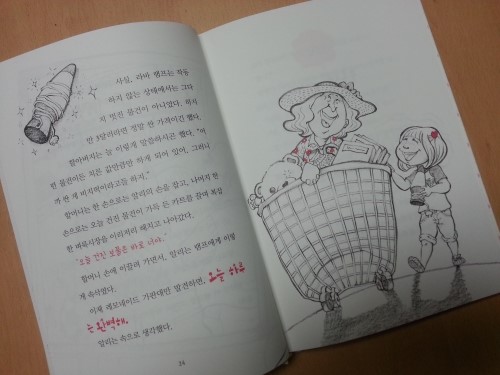 사실, 라바 램프는 작동
하지 않는 상태에서는 그다
지 멋진 물건이 아니었다. 하지
만 3달러라면 정말 싼 가격이긴 했다.
할아버지는 늘 이렇게 말씀하시곤 했다. "어
떤 물건이든 치른 값만큼만 하게 되어 있어. 그러니
까 싼 게 비지떡이라고들 하지."
할머니는 한 손으로는 알리의 손을 잡고, 나머지 한
손으로는 오늘 건진 물건이 가득 든 카트를 끌며 북적
한 바자회장을 이리저리 헤치고 나아갔다.
"오늘 건진 보물은 바로 너야."
할머니 손에 이끌려 가면서, 알리는 램프에게 이렇
게 속삭였다.
이제 레모네이드 가판대만 발견하면, 오늘 하루
는 완벽해.
알리는 속으로 생각했다.
24